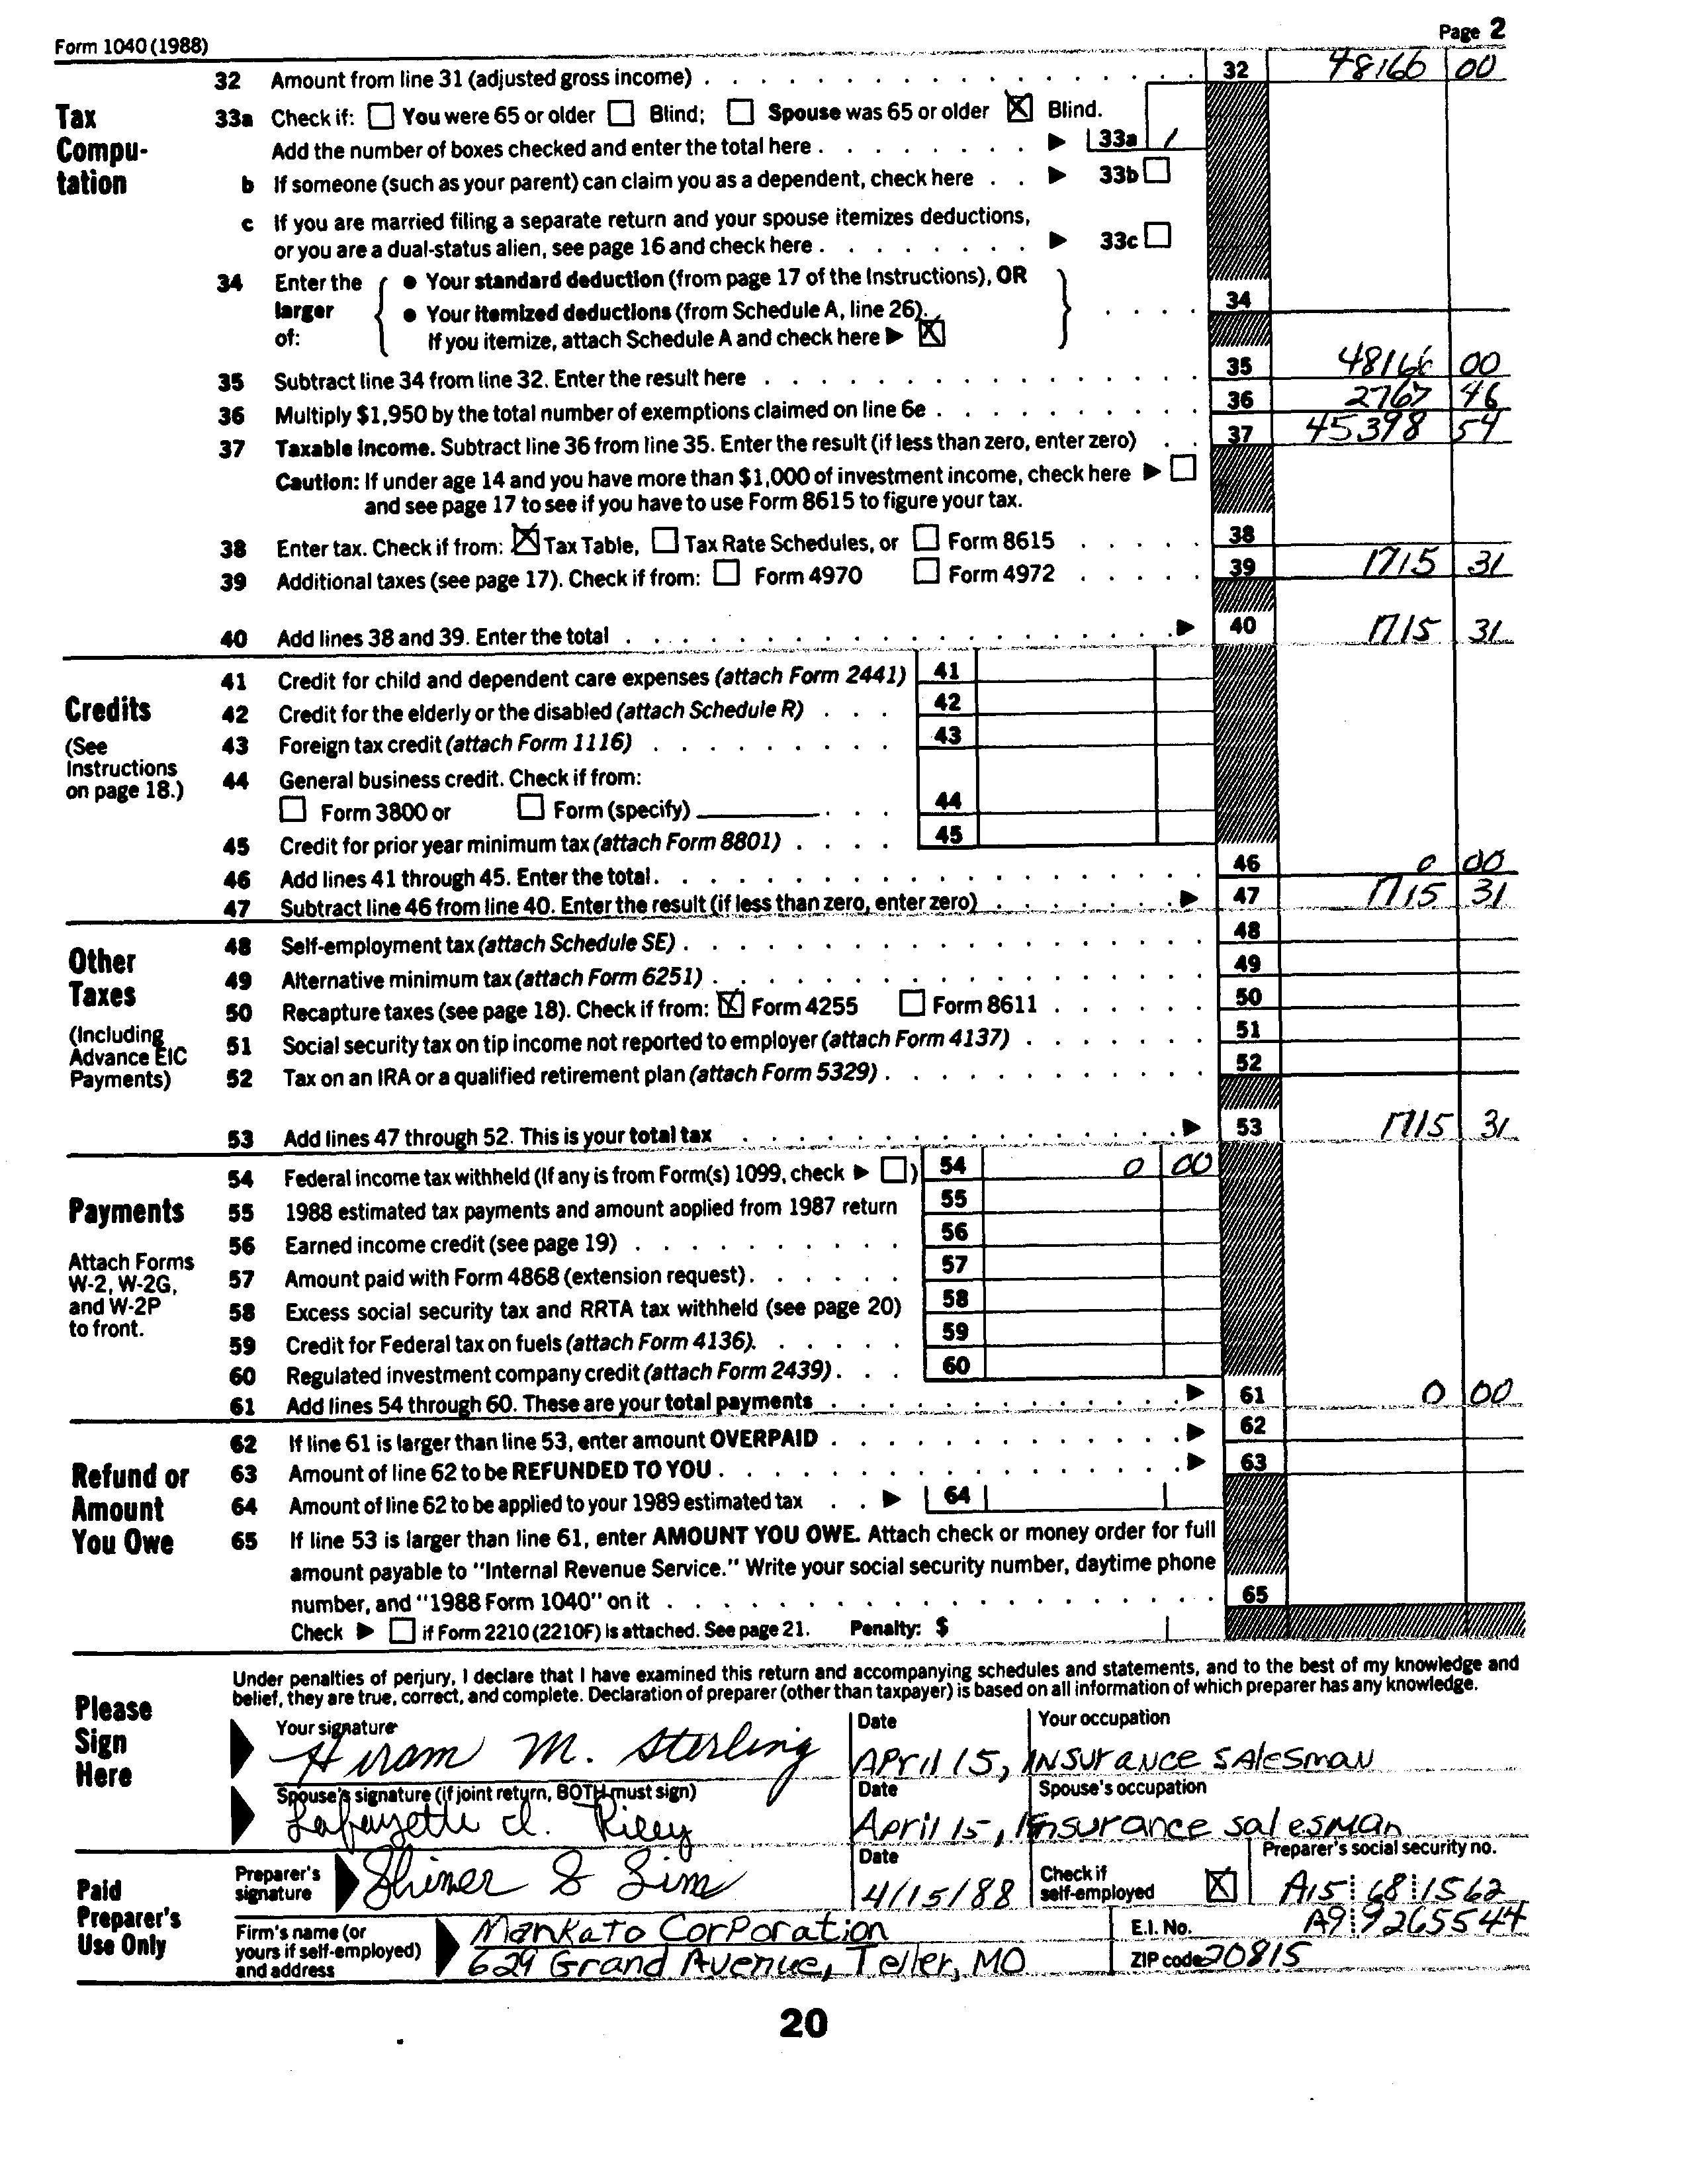 Form 1040 (1988) Page 2
32 Amount from line 31 (adjusted gross income) 32 48166 00
Tax Compu- tation
33a Check if: You were 65 or older Blind; Spouse was 65 or older Blind.
Add the number of boxes checked and enter the total here 33a 1
b If someone (such as your parent) can claim you as a dependent, check here 33b
c If you are married filing a separate return and your spouse itemizes deductions,
or you are a dual-status alien, see page 16 and check here 33c
34 Enter the larger of:
• Your standard deduction (from page 17 of the Instructions), OR
• Your itemized deductions (from Schedule A, line 26). 34
If you itemize, attach Schedule A and check here
35 Subtract line 34 from line 32. Enter the result here 35 48166 00
36 Multiply $1,950 by the total number of exemptions claimed on line 6e 36 2767 46
37 Taxable income. Subtract line 36 from line 35. Enter the result (if less than zero, enter zero) 37 45398 54
Caution: If under age 14 and you have more than $1,000 of investment income, check here
and see page 17 to see if you have to use Form 8615 to figure your tax.
38 Enter tax. Check if from: Tax Table, Tax Rate Schedules, or Form 8615 38
39 Additional taxes (see page 17). Check if from: Form 4970 Form 4972 39 1715 31
40 Add lines 38 and 39. Enter the total 40 1715 31
Credits
(See Instructions on page 18.)
41 Credit for child and dependent care expenses (attach Form 2441) 41
42 Credit for the elderly or the disabled (attach Schedule R) 42
43 Foreign tax credit (attach Form 1116) 43
44 General business credit. Check if from:
Form 3800 or Form (specify) 44
45 Credit for prior year minimum tax (attach Form 8801) 45
46 Add lines 41 through 45. Enter the total. 46 0 00
47 Subtract line 46 from line 40. Enter the result (if less than zero, enter zero) 47 1715 31
Other Taxes
(Including Advance EIC Payments)
48 Self-employment tax (attach Schedule SE) 48
49 Alternative minimum tax (attach Form 6251) 49
50 Recapture taxes (see page 18). Check if from: Form 4255 Form 8611 50
51 Social security tax on tip income not reported to employer (attach Form 4137) 51
52 Tax on an IRA or a qualified retirement plan (attach Form 5329) 52
53 Add lines 47 through 52. This is your total tax 53 1715 31
Payments
Attach Forms W-2, W-2G, and W-2P to front.
54 Federal income tax withheld (If any is from Form(s) 1099, check ) 54 0 00
55 1988 estimated tax payments and amount applied from 1987 return 55
56 Earned income credit (see page 19) 56
57 Amount paid with Form 4868 (extension request) 57
58 Excess social security tax and RRTA tax withheld (see page 20) 58
59 Credit for Federal tax on fuels (attach Form 4136). 59
60 Regulated investment company credit (attach Form 2439) 60
61 Add lines 54 through 60. These are your total payments 61 0 00
Refund or Amount You Owe
62 If line 61 is larger than line 53, enter amount OVERPAID 62
63 Amount of line 62 to be REFUNDED TO YOU 63
64 Amount of line 62 to be applied to your 1989 estimated tax 64
65 If line 53 is larger than line 61, enter AMOUNT YOU OWE. Attach check or money order for full
amount payable to "Internal Revenue Service." Write your social security number, daytime phone
number, and "1988 Form 1040" on it 65
Check if Form 2210 (2210F) is attached. See page 21. Penalty: $
Please Sign Here
Under penalties of perjury, I declare that I have examined this return and accompanying schedules and statements, and to the best of my knowledge and
belief, they are true, correct, and complete. Declaration of preparer (other than taxpayer) is based on all information of which preparer has any knowledge.
Your signature Date Your occupation
Hiram M. Sterling APril 15, INSurance SAlesman
Spouse's signature (if joint return, BOTH must sign) Date Spouse's occupation
Lafayette d. Riley April 15, Insurance salesman
Paid Preparer's Use Only
Preparer's signature Date Check if self-employed Preparer's social security no.
Shiner & Sim 4/15/88 A15 68 1562
Firm's name (or yours if self-employed) and address
Mankato Corporation E.I. No. A9 9265544
629 Grand Avenue, Teller, MO ZIP code 20815
20